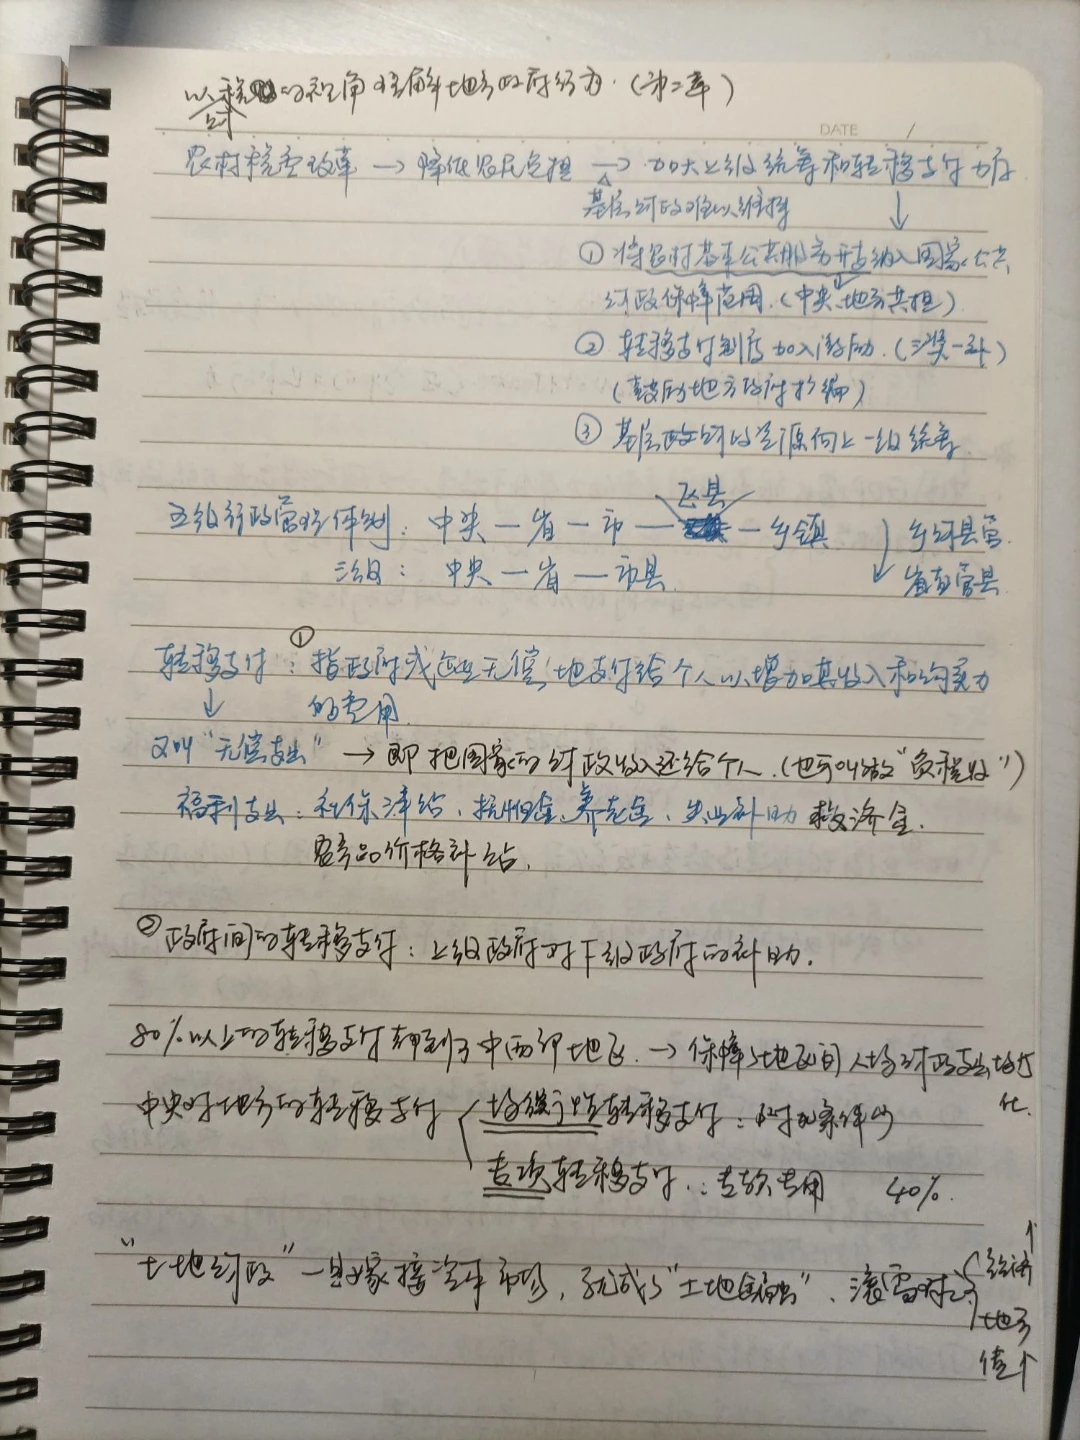 以财税的视角理解地方政府行为.（第二章）
DATE /
农村税费改革 → 降低农民负担 → 加大上级统筹和转移支付力度
基层财政难以维持 ↓
① 将农村基本公共服务开支纳入国家公共
财政保障范围.（中央、地方共担）
② 转移支付制度加入激励.（三奖一补）
（鼓励地方政府拆编）
③ 基层政府的资源向上一级统筹.
区县
五级行政管理体制: 中央一省一市一 一乡镇 ↓ 乡财县管.
三级: 中央一省一市县. 省直管县.
转移支付: ① 指政府或企业无偿地支付给个人以增加其收入和购买力
↓ 的费用.
又叫“无偿支出” → 即把国家的财政收入还给个人.（也可叫做“负税收”）
福利支出: 社保津贴、抚恤金、养老金、失业补助 救济金.
农产品价格补贴.
②政府间的转移支付: 上级政府对下级政府的补助.
80%以上的转移支付都到了中西部地区. → 保障各地区间人均财政支出均等
化.
中央对地方的转移支付 均衡性转移支付:
专项转移支付: 专款专用 40%.
“土地财政”一旦嫁接资本市场, 就成了“土地金融”、滚雪球 经济↑
地方
债↑